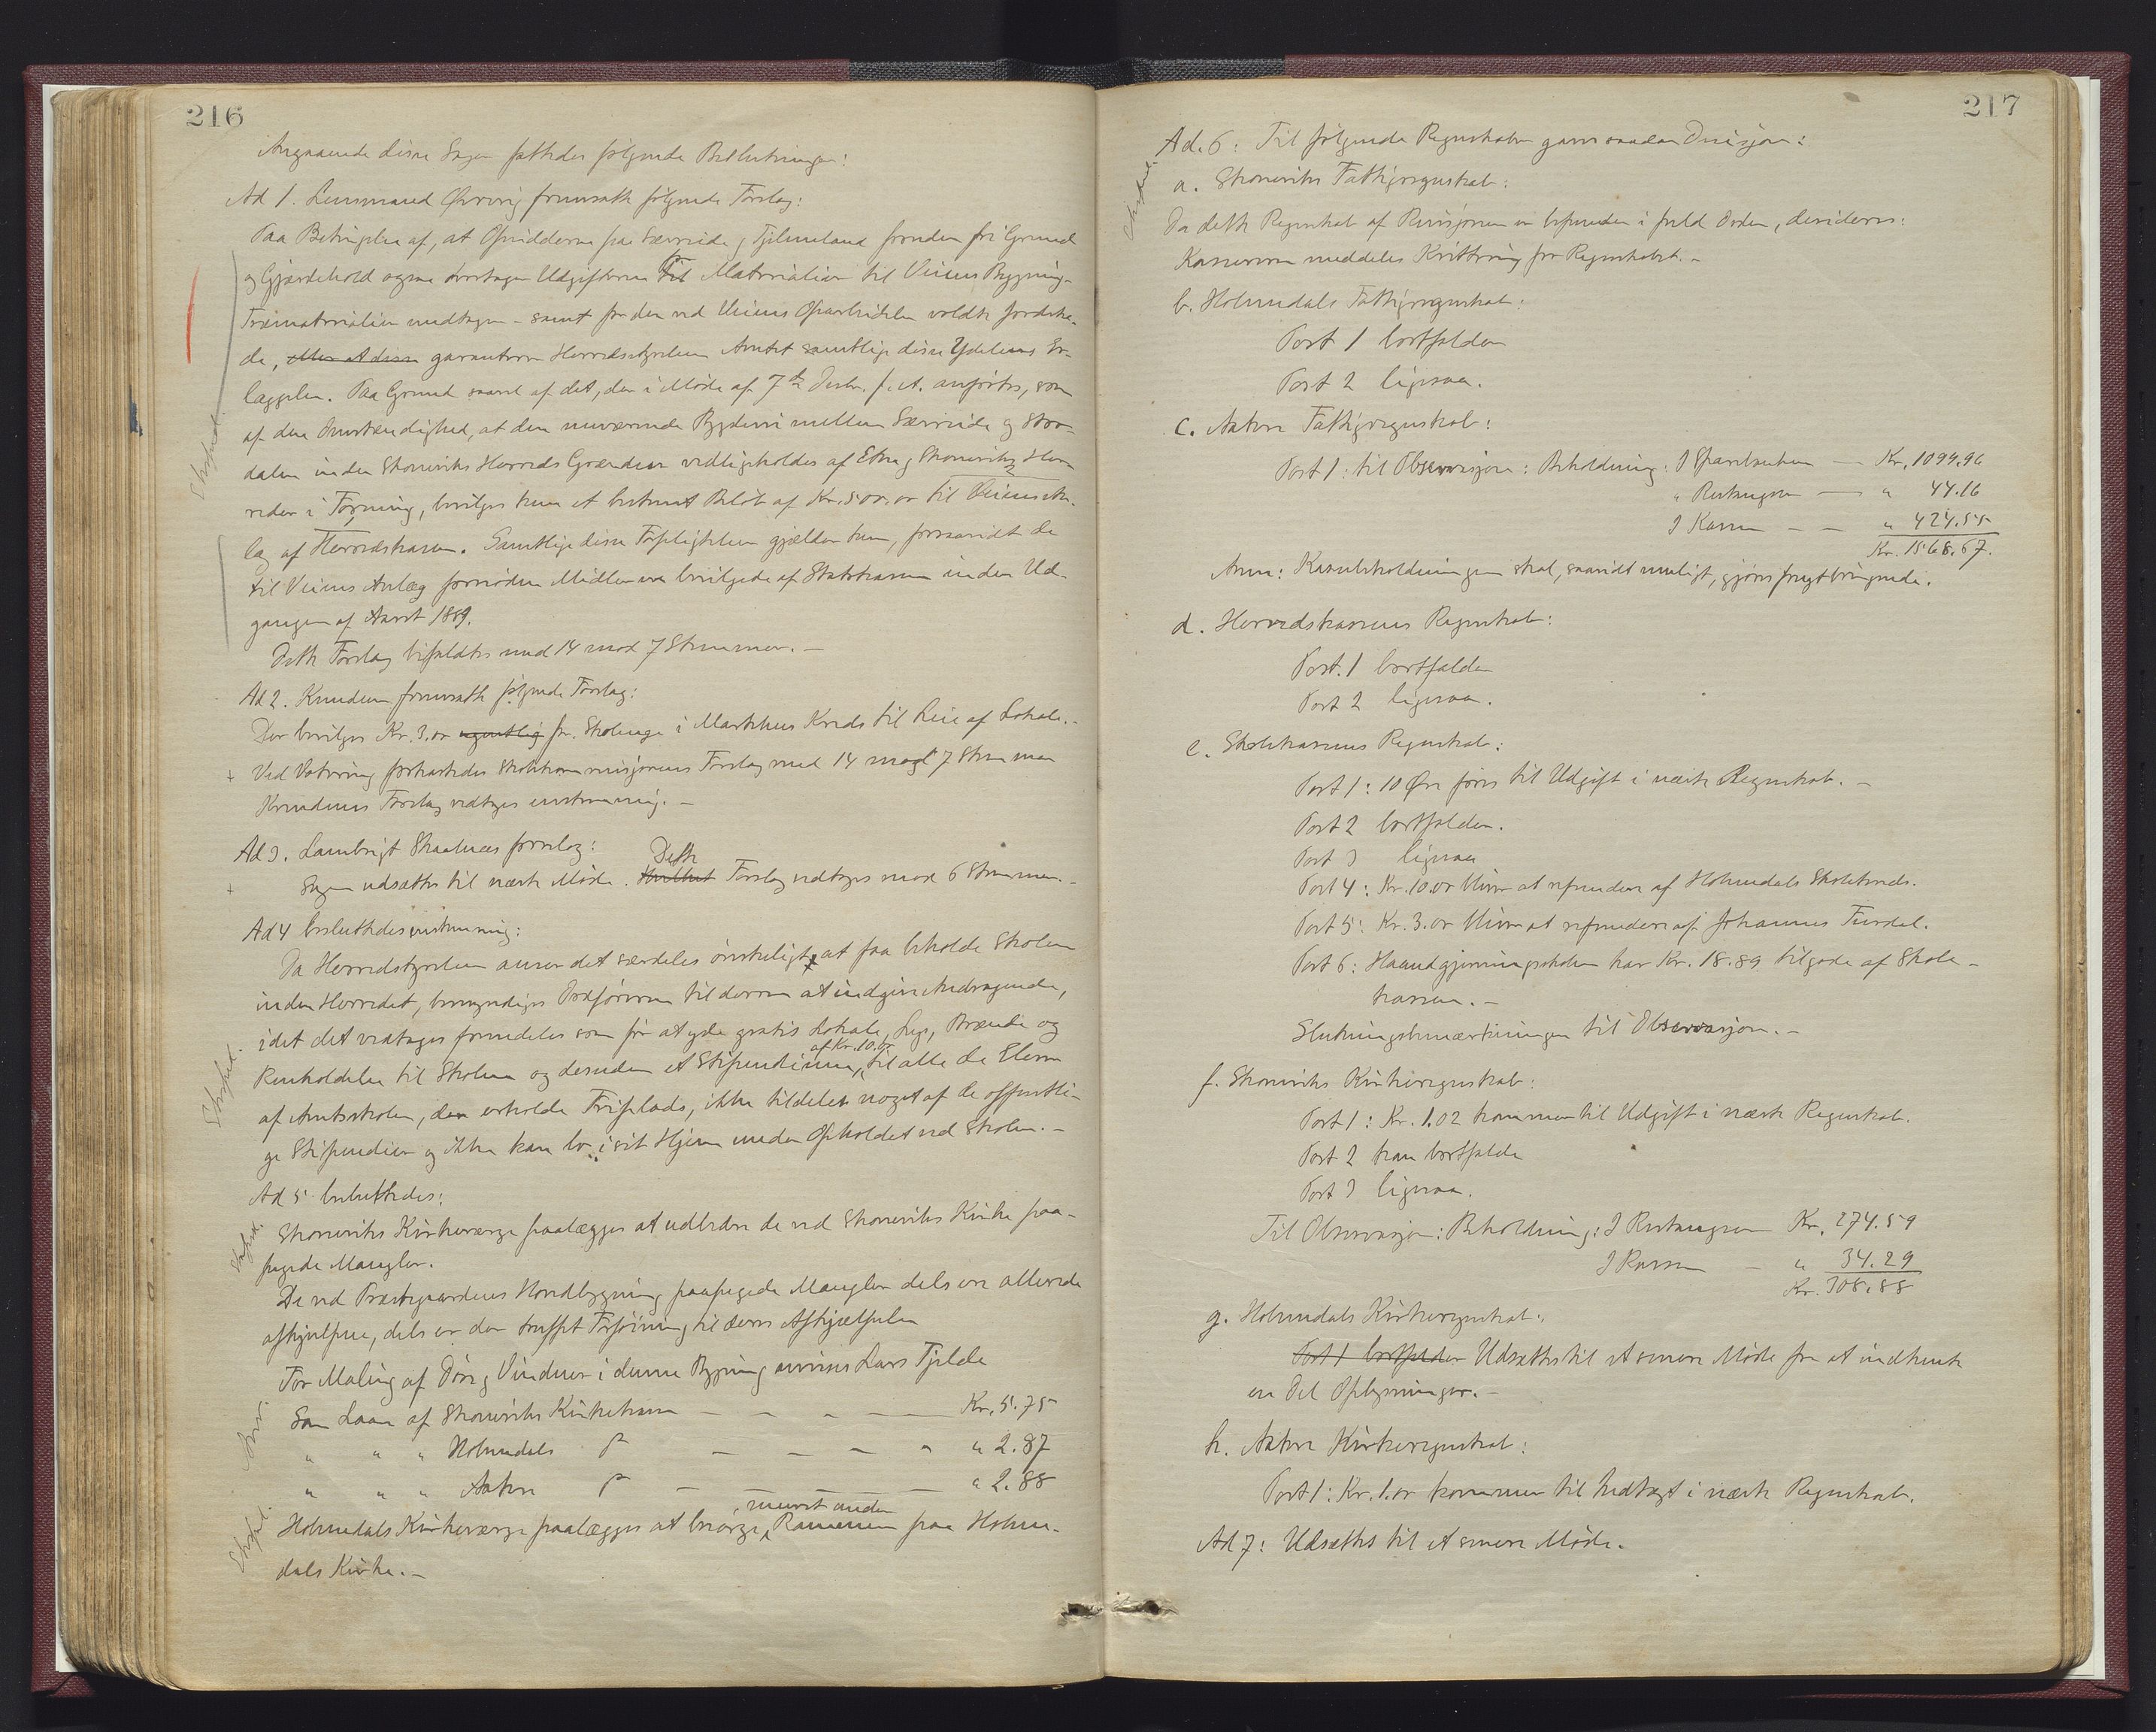 216
Angaaende disse Sager fattedes følgende Beslutninger:
Ad 1. Lensmand Øvrevig fremsatte følgende Forslag:
Paa Betingelse af, at Opsidderne paa Særvide og Fjelmeland frender fri Grund
og Gjærdehold ogsaa overtager Udgifterne til Materialier til Veiens Bygning -
Træmaterialier undtagen - samt for den ved Veiens Oparbeidelse voldte Jordska-
de, eller at disse garanterer Herredsstyrelsen Amtet samtlige disse Ydelsers Er-
læggelse. Paa Grund saavel af det, der i Møde af 7de Decbr. f. A. anførtes, som
af den Omstændighed, at den nuværende Bygdevei mellem Særvide og Stor-
dalen inden Skoneviks Herreds Grændser vedligeholdes af Etne og Skoneviks Her-
reder i Forening, bevilges kun et bestemt Beløb af Kr. 500.00 til Veiens An-
læg af Herredskassen. Samtlige disse Forpligtelser gjælder kun, forsaavidt de
til Veiens Anlæg fornødne Midler er bevilgede af Statskassen inden Ud-
gangen af Aaret 1889.
Dette Forslag bifaldtes med 14 mod 7 Stemmer. -
Ad 2. Knudsen fremsatte følgende Forslag:
Der bevilges Kr. 3.00 ugentlig pr. Skoleuge i Markhus Kreds til Leie af Lokale. -
+ Ved Votering forkastedes Skolekommissjonens Forslag med 14 mod 7 Stemmer
Knudsens Forslag vedtoges enstemmig. -
Ad 3. Lambrigt Skaalnæs foreslog:
+ Sagen udsættes til næste Møde. Dette Forslag vedtoges mod 6 Stemmer. -
Ad 4 besluttedes enstemmig:
Da Herredsstyrelsen anser det særdeles ønskeligt, at faa beholde Skolen
inden Herredet, bemyndiges Ordføreren til derom at indgive Andragende,
idet det vedtages fremdeles som før at yde gratis Lokale, Lys, Brænde og
Renholdelse til Skolen og desuden et Stipendium, af Kr. 10.00 til alle de Elever
af Amtsskolen, der erholde Friplads, ikke tildeles noget af de offentli-
ge Stipendier og ikke kan bo i sit Hjem under Opholdet ved Skolen. -
Ad 5 besluttedes:
Skoneviks Kirkeværge paalægges at udbedre de ved Skoneviks Kirke paa-
pegede Mangler.
De ved Præstegaardens Hovedbygning paapegede Mangler dels ere allerede
afhjulpne, dels er der truffet Forføining til deres Afhjælpelse
For Maling af Døre og Vinduer i denne Bygning anvises Lars Tjelde
Som Laan af Skoneviks Kirkekasse — — — — Kr. 5.75
" " " Holmedals — — — — " 2.87
" " " Aakre — — — — " 2.88
Holmedals Kirkeværge paalægges at besørge, snarest, Rammerne paa Holme-
dals Kirke. -
Expd.
Expd.
Expd.
Anv.
Expd.
217
Ad. 6: Til følgende Regnskaber gaves saadan Desisjon:
a. Skoneviks Fattigregnskab:
Da dette Regnskab af Revisjonen er befunden i fuld Orden, desideres:
Kassereren meddeles Kvittering for Regnskabet. -
b. Holmedals Fattigregnskab:
Post 1 bortfalder
Post 2 ligesaa.
c. Aakre Fattigregnskab:
Post 1: til Observasjon: Beholdning: I Sparebanken — Kr. 1099.96
" Restanser — " 44.16
I Kasse — — " 424.55
Kr. 1568.67.
Anm: Kassebeholdningen skal, saavidt muligt, gjøres frugtbringende.
d. Herredskassens Regnskab:
Post. 1 bortfalder
Post 2 ligesaa.
e. Skolekassens Regnskab:
Post 1: 10 Øre føres til Udgift i næste Regnskab. -
Post 2 bortfalder.
Post 3 ligesaa
Post 4: Kr. 10.00 bliver at refundere af Holmedals Skolekreds.
Post 5: Kr. 3.00 bliver at refundere af Johannes Furdal.
Post 6: Haandgjerningsskolen har Kr. 18.89 tilgode af Skole-
kassen. -
Slutningsbemærkningen til Observasjon. -
f. Skoneviks Kirkeregnskab:
Post 1: Kr. 1.02 kommer til Udgift i næste Regnskab.
Post 2 kan bortfalde
Post 3 ligesaa.
Til Observasjon: Beholdning: I Restanser Kr. 274.59
I Kasse — " 34.29
Kr. 308.88
g. Holmedals Kirkeregnskab:
Post 1 bortfalder Udsættes til et senere Møde for at indhente
en Del Oplysninger. -
h. Aakre Kirkeregnskab:
Post 1: Kr. 1.00 kommer til Indtægt i næste Regnskab.
Ad 7: Udsættes til et senere Møde.